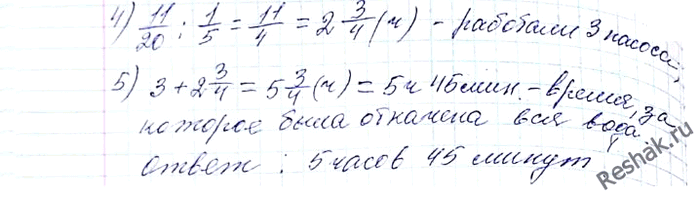 4) 11/20 : 1/5 = 11/4 = 2 3/4 (ч) - работали 3 насоса,
5) 3 + 2 3/4 = 5 3/4 (ч) = 5 ч 45 мин. - время, за
которое была откачена вся вода
ответ : 5 часов 45 минут
Reshak.ru